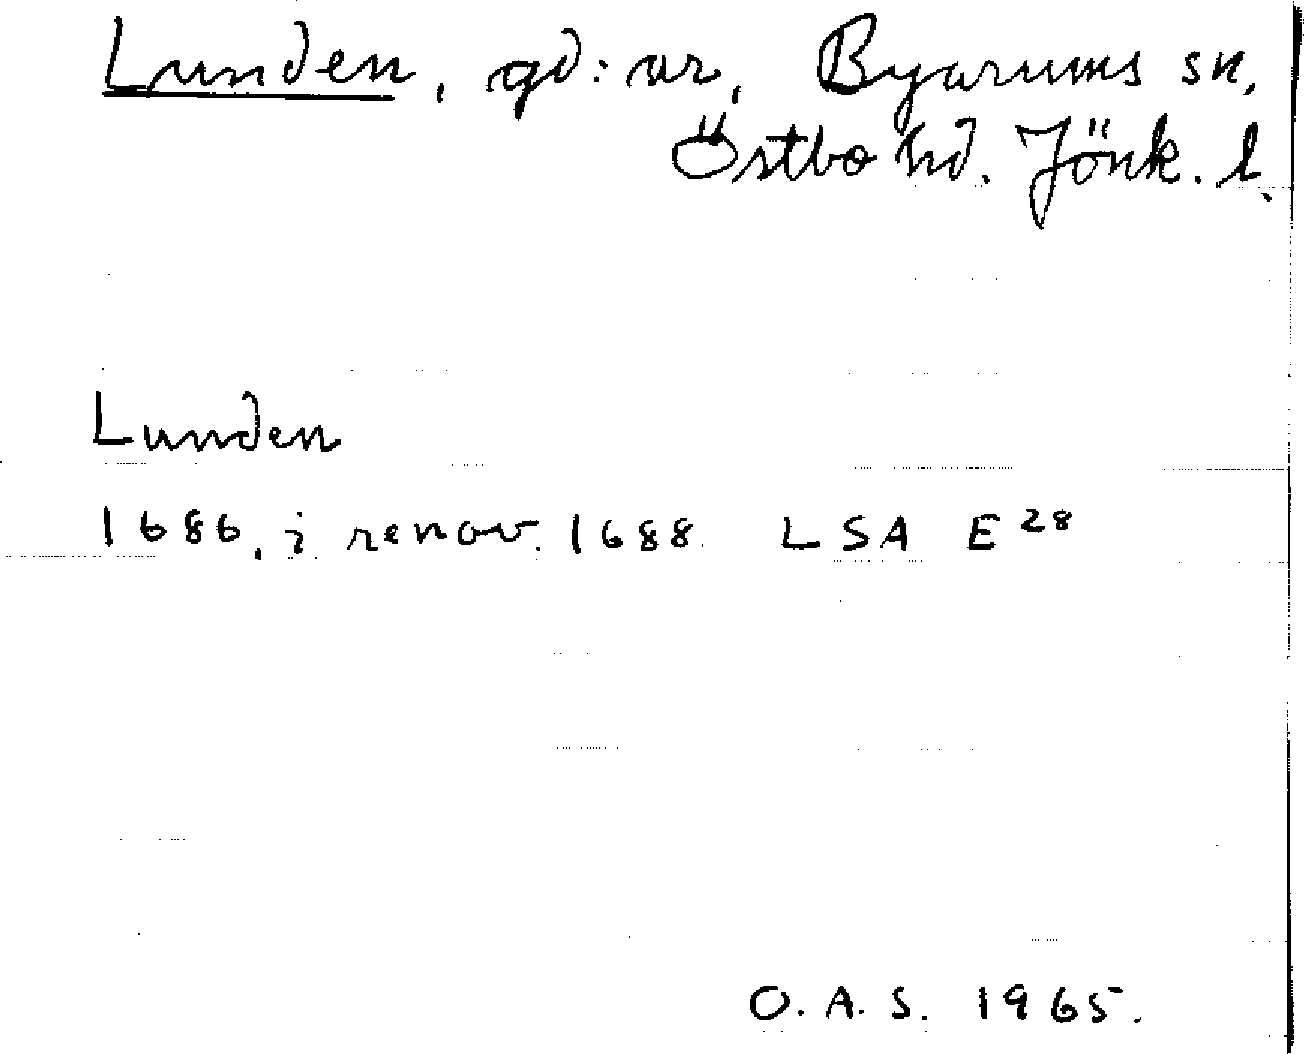 Lunden, gd: ar, Byarums sn,
Östbo hd. Jönk. l.
Lunden
1686, i renov. 1688 LSA E 28
O. A. S. 1965.